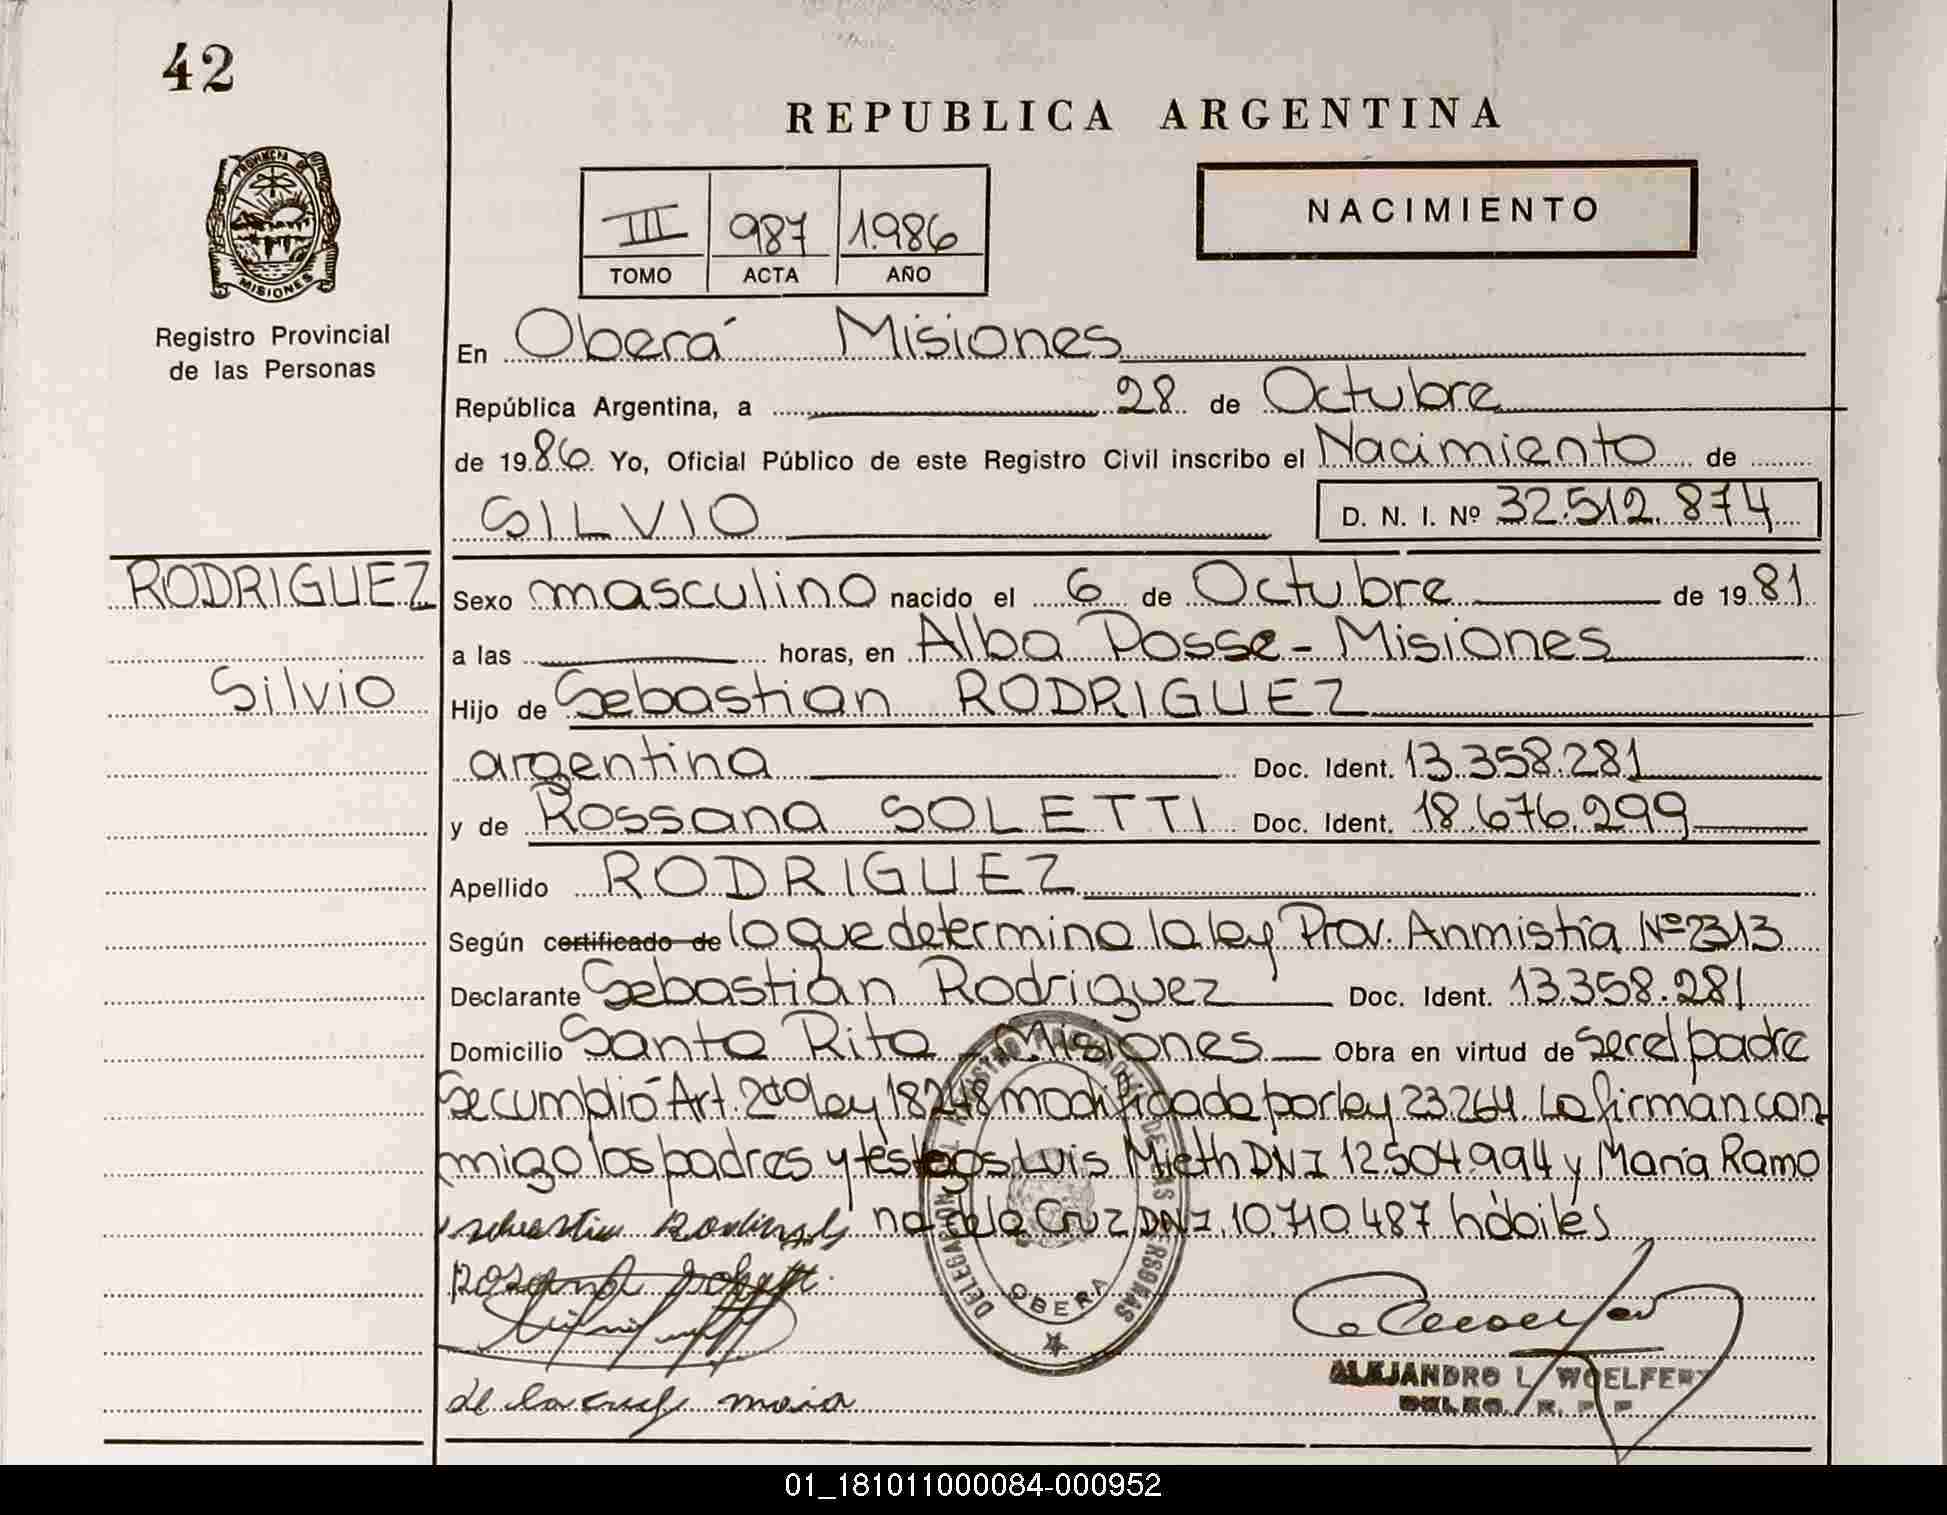 42
REPUBLICA ARGENTINA
PROVINCIA DE
MISIONES
III 987 1.986
TOMO ACTA AÑO
NACIMIENTO
Registro Provincial
de las Personas
En Oberá Misiones
República Argentina, a 28 de Octubre
de 1986 Yo, Oficial Público de este Registro Civil inscribo el Nacimiento de
SILVIO D. N. I. Nº 32.512.874
RODRIGUEZ
Silvio
Sexo masculino nacido el 6 de Octubre de 1981
a las horas, en Alba Posse - Misiones
Hijo de Sebastian RODRIGUEZ
argentina Doc. Ident. 13.358.281
y de Rossana SOLETTI Doc. Ident. 18.676.299
Apellido RODRIGUEZ
Según certificado de lo que determina la ley Prov. Anmistía Nº 2313
Declarante Sebastián Rodriguez Doc. Ident. 13.358.281
Domicilio Santa Rita - Misiones Obra en virtud de ser el padre
Se cumplió Art. 2do ley 18248 modificada por ley 23.264. La firman con
migo los padres y testigos Luis Mieth DNI 12.504.994 y María Ramo
na de la Cruz DNI. 10.710.487 hábiles
de la cruz maria
DE LAS PERSONAS
DELEGACION
OBERA
ALEJANDRO L. WOELFERT
DELEG. R. P. P.
01_181011000084-000952